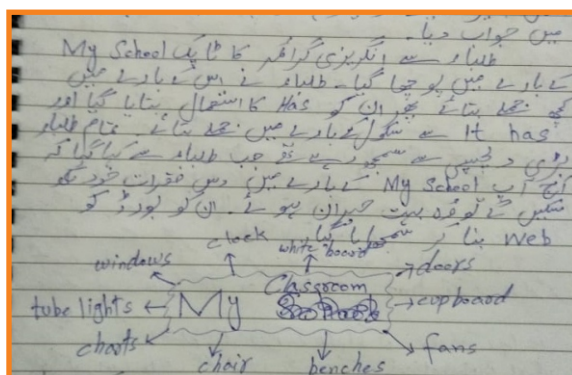 میں جواب دیا۔
طلباء سے انگریزی گرائمر کا ٹاپک My School
کے بارے میں پوچھا گیا۔ طلباء نے اس کے بارے میں
کچھ جملے بتائے پھر ان کو Has کا استعمال بتایا گیا اور
It has سے سکول کے بارے میں جملے بتائے۔ تمام طلباء
بڑی دلچسپی سے سمجھ رہے تھے جب طلباء سے کہا گیا کہ
آج آپ My School کے بارے میں دس فقرات خود لکھ
سکیں گے تو وہ بہت حیران ہوئے۔ ان کو بورڈ کو
Web بنا کر سمجھایا گیا۔
clock white board
windows doors
Classroom
tube lights My cupboard
charts fans
chair benches